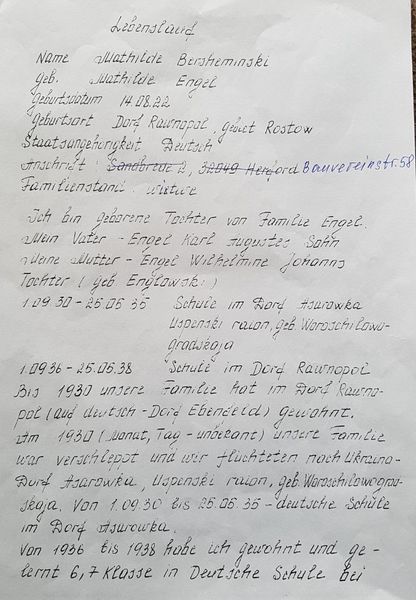 Lebenslauf
Name Mathilde Bersheminski
geb. Mathilde Engel
Geburtsdatum 14.08.22
Geburtsort Dorf Rawnopol, Gebiet Rostow
Staatsangehörigkeit Deutsch
Anschrift: Sandbrede 2, 32049 Herford Bauvereinstr. 58
Familienstand: witwe
Ich bin geborene Tochter von Familie Engel.
Mein Vater - Engel Karl Augustes Sohn
Meine Mutter - Engel Wilhelmine Johanns
Tochter (geb. Englowski)
1.09.30 - 25.05.35 Schule im Dorf Asarowka
Uspenski raion, geb. Woroschilowo-
gradskaja
1.09.36 - 25.05.38 Schule im Dorf Rawnopol
Bis 1930 unsere Familie hat im Dorf Rawno-
pol (auf deutsch - Dorf Ebenfeld) gewohnt.
Am 1930 (Monat, Tag - unbekant) unsere Familie
war verschlept und wir flüchteten nach Ukraine-
Dorf Asarowka, Uspenski raion, geb. Woroschilowogra-
dskaja. Von 1.09.30 bis 25.05.35 - deutsche Schule
im Dorf Asurowka.
Von 1936 bis 1938 habe ich gewohnt und ge-
lernt 6,7 Klasse in Deutsche Schule bei